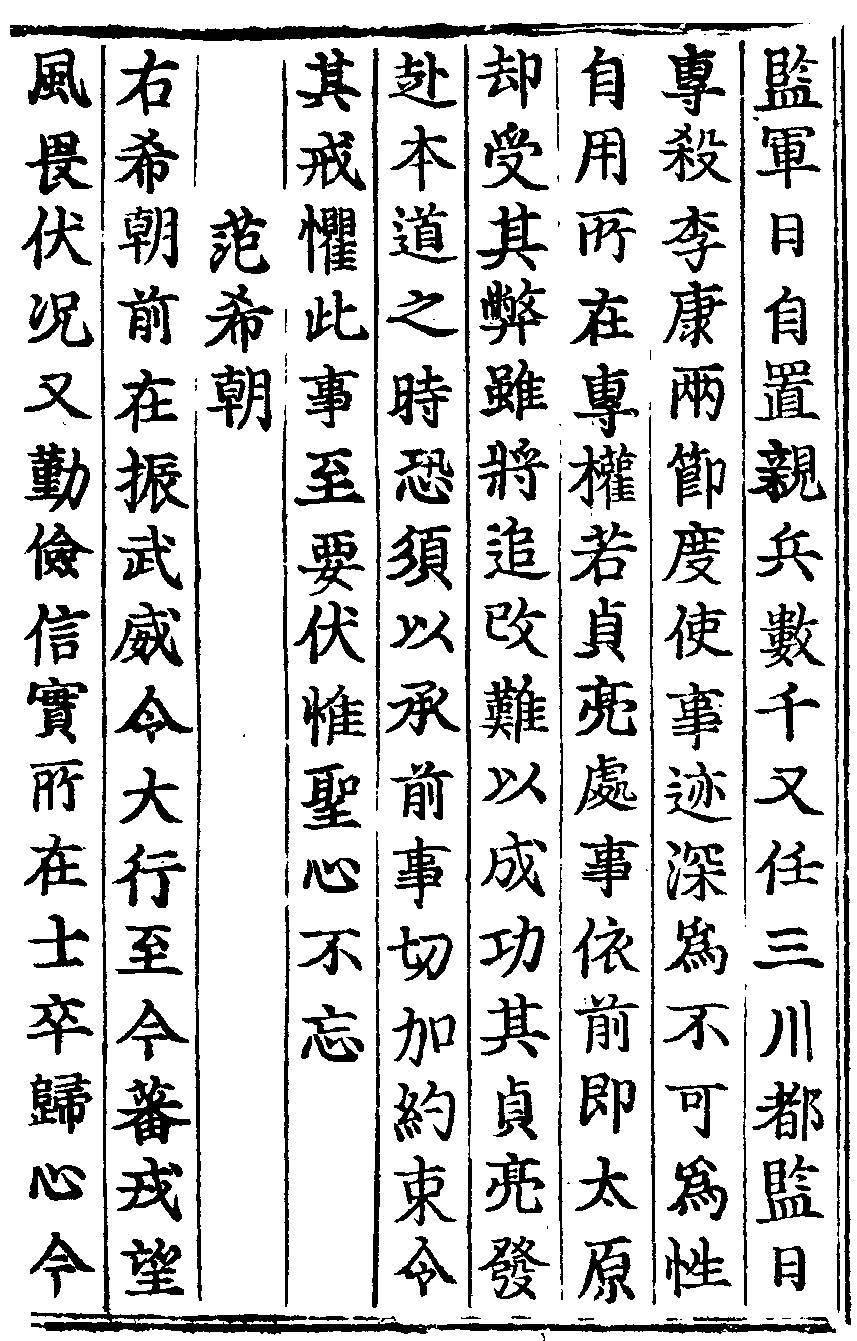 監軍日自置親兵數千又任三川都監日
專殺李康兩節度使事迹深爲不可爲性
自用所在專權若貞亮處事依前即太原
却受其弊雖將追改難以成功其貞亮發
赴本道之時恐須以承前事切加約束令
其戒懼此事至要伏惟聖心不忘
范希朝
右希朝前在振武威令大行至今蕃戎望
風畏伏况又勤儉信實所在士卒歸心今